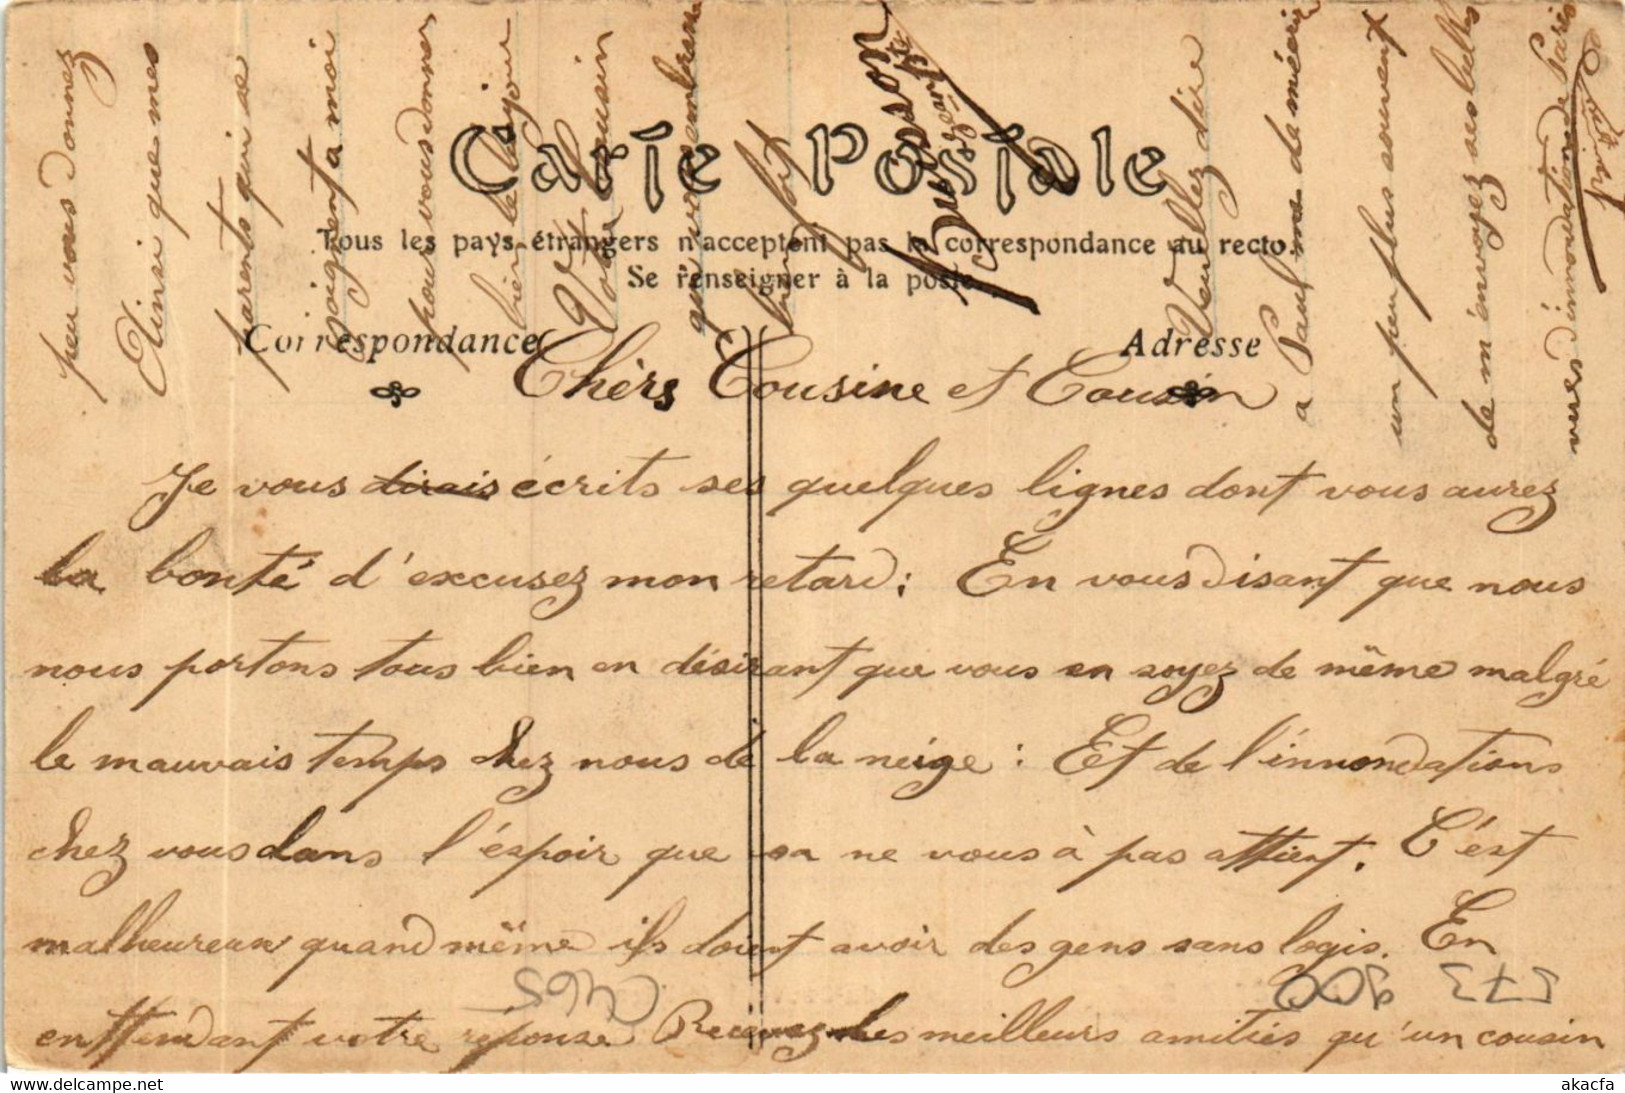 Carte Postale
Tous les pays étrangers n'acceptent pas la correspondance au recto.
Se renseigner à la poste.
Correspondance
Adresse
Chèrs Cousine et Cousin
Je vous dirais écrits ses quelques lignes dont vous aurez
la bonté d'excusez mon retard : En vous disant que nous
nous portons tous bien en désirant que vous en soyez de même malgré
le mauvais temps chez nous de la neige : Et de l'innondations
chez vous dans l'éspoir que sa ne vous à pas attient. C'est
malheureux quand même ils doient avoir des gens sans logis. En
enttendant votre réponse Recevez les meilleurs amitiés qu'un cousin
peu vous donnez
Einsi que mes
parents qui se
joignent a moi
pour vous donner
bien le bojour
Votre Cousin
qui vous embrasse
bien fort
Husson
Veuillez dire
a Paul me de méeris
un peu plus souvent
de m'envoyez ses belles
vues d'innondation de Paris
373 900
CM65
akacfa
delcampe.net